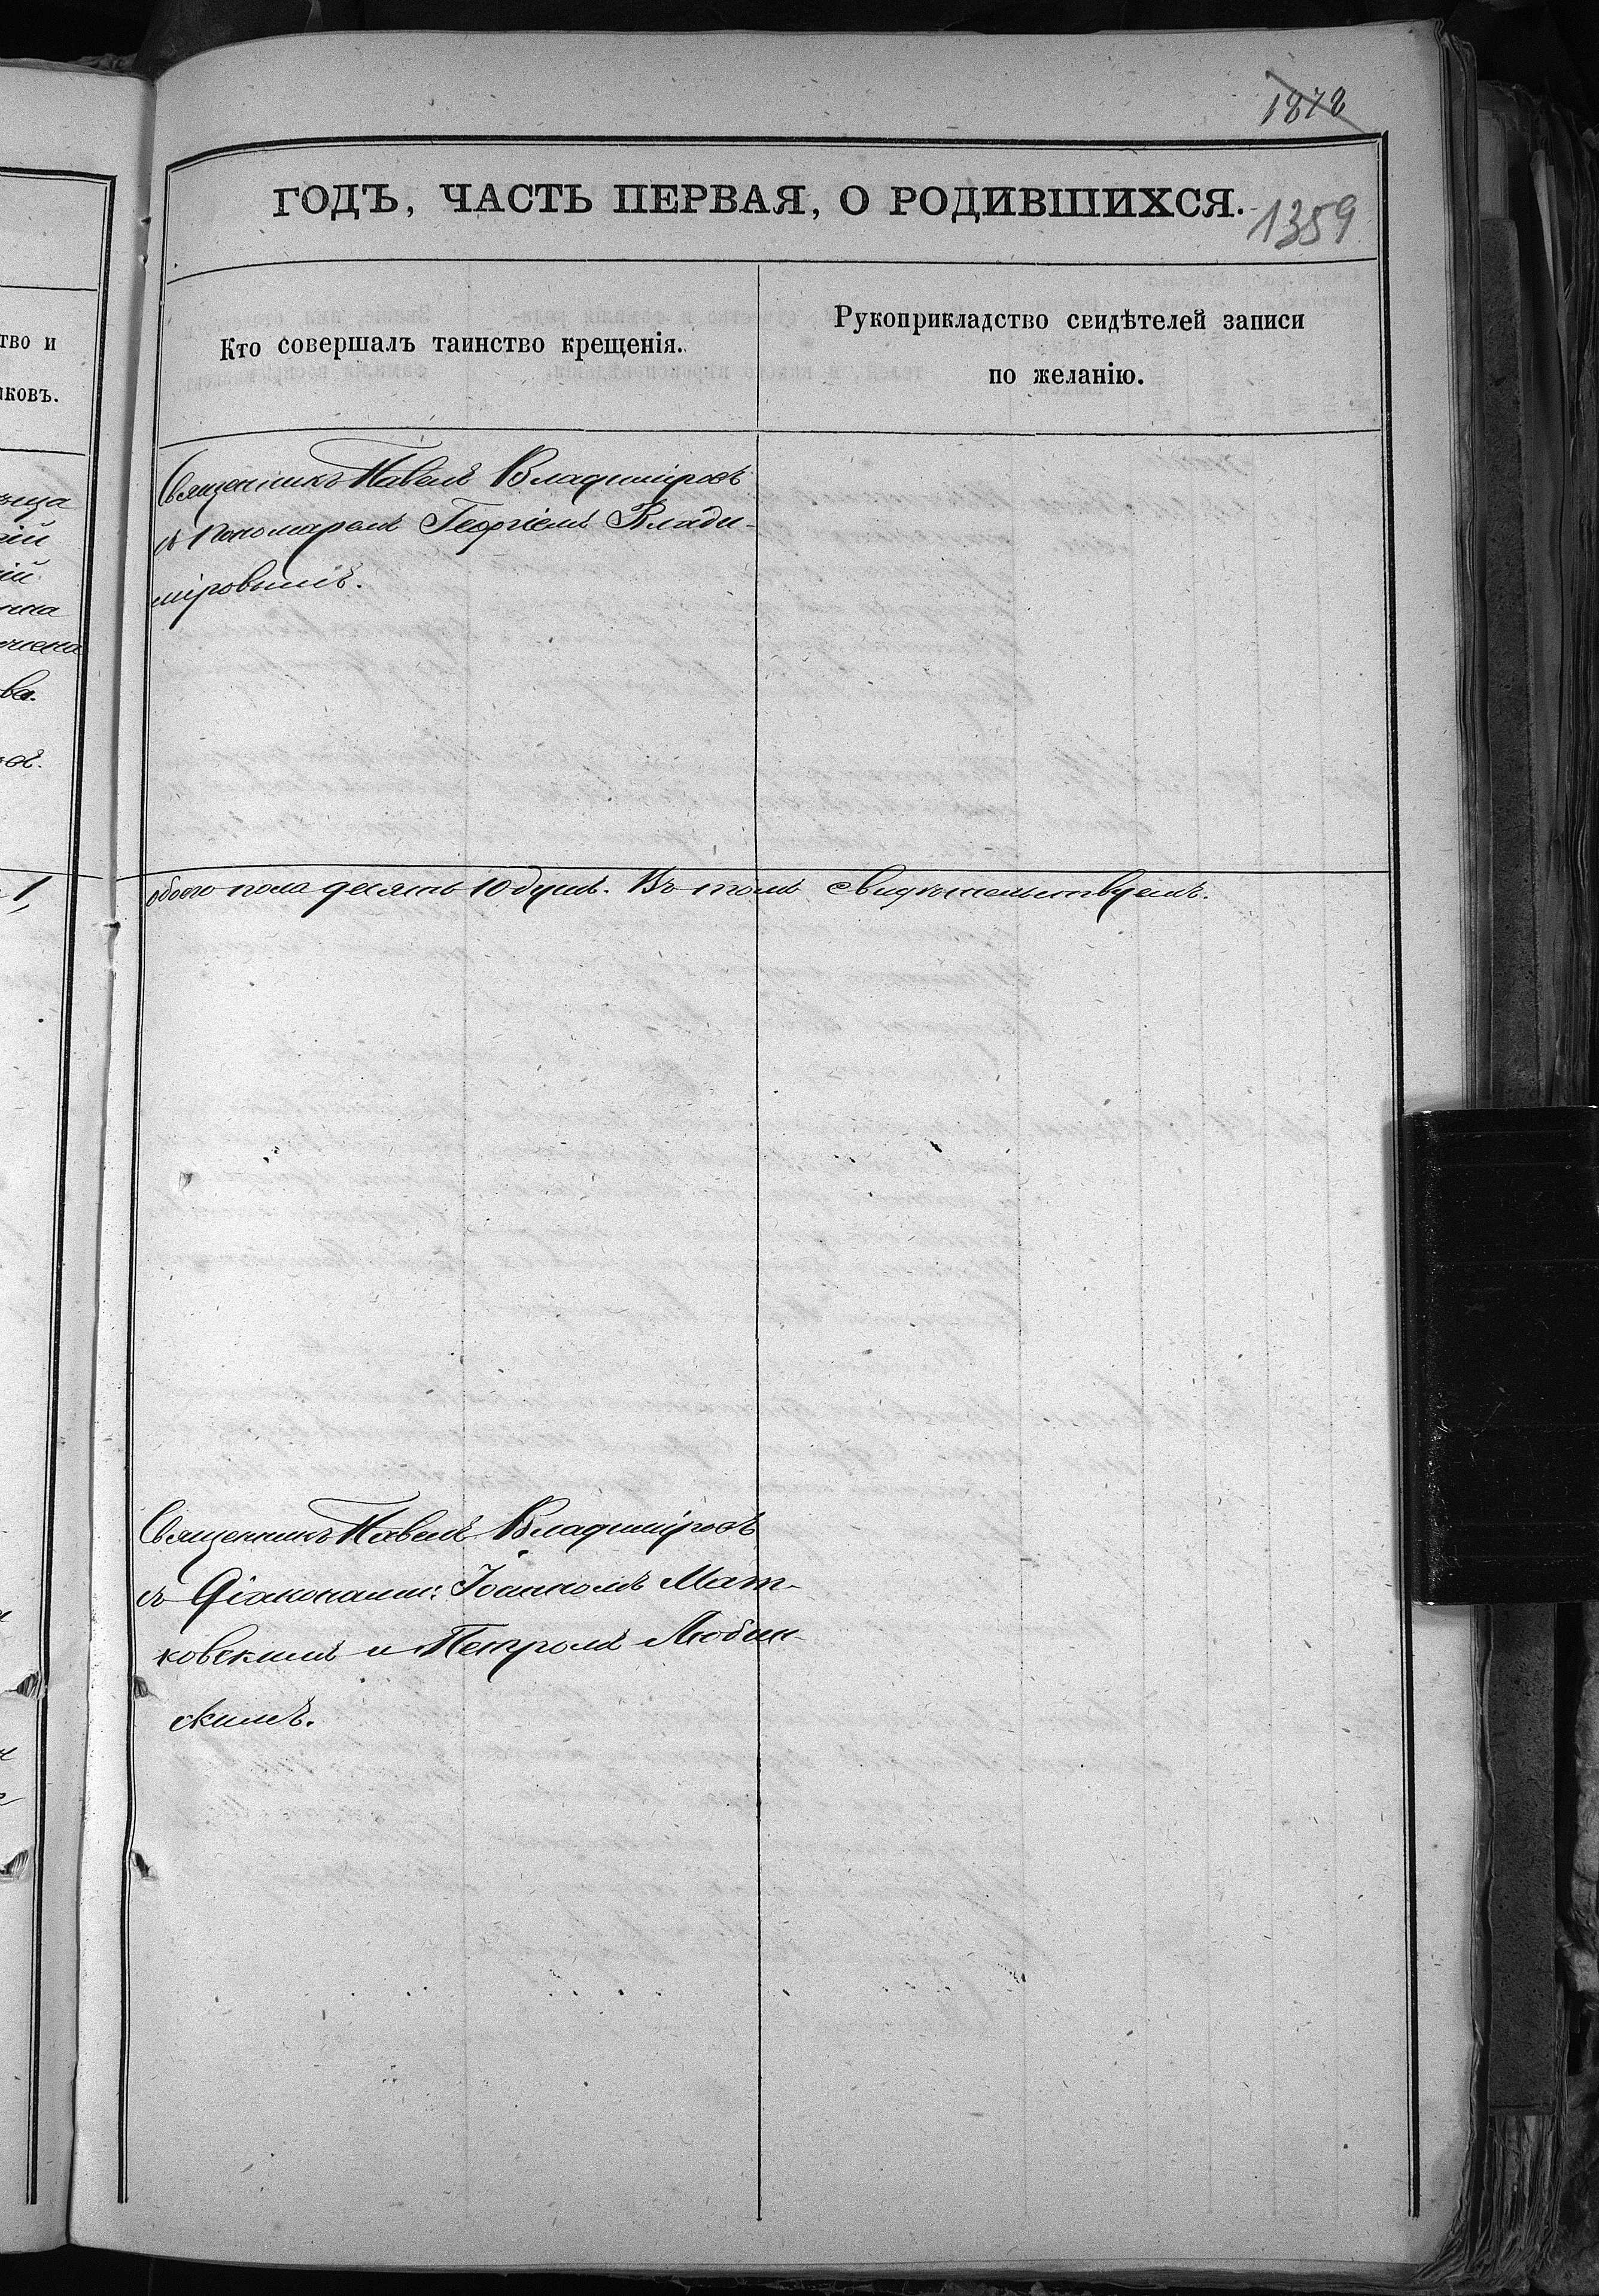 1878
ГОДЪ, ЧАСТЬ ПЕРВАЯ, О РОДИВШИХСЯ.
1359
тво и
иковъ.
Кто совершалъ таинство крещенія.
Рукоприкладство свидѣтелей записи
по желанію.
Священникъ Павелъ Владиміровъ
съ Пономаремъ Георгіемъ Влади-
міровымъ.
ва.
1
обоего пола десять 10 душъ. Въ томъ свидѣтельствуемъ.
Священникъ Павелъ Владиміровъ
съ Діаконами: Іоанномъ Мат-
ковскимъ и Петромъ Любин-
скимъ.